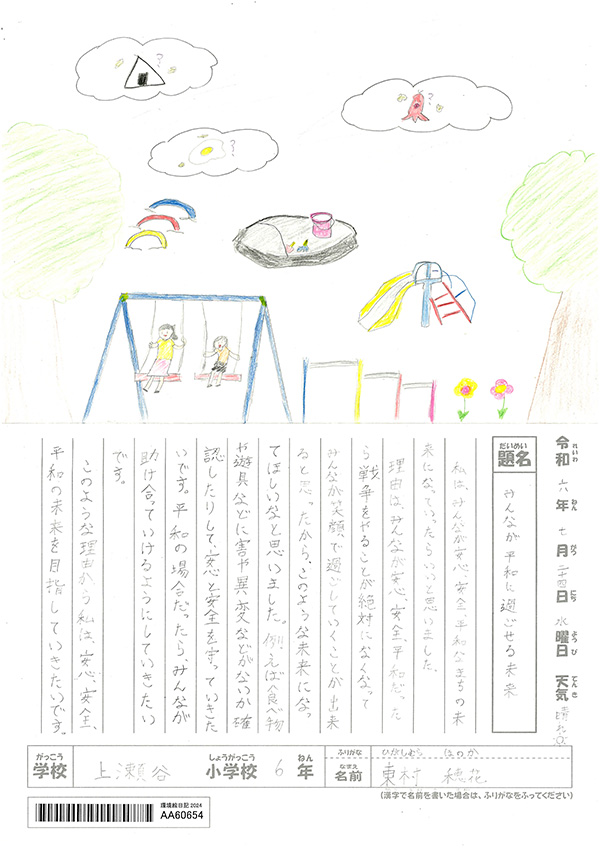 ?
?
?
令和 六年 七月 二十四日 水曜日 天気 晴れ
れいわ ねん がつ にち ようび てんき
だいめい
題名
みんなが平和に過ごせる未来
私は、みんなが安心、安全、平和なまちの未
来になっていったらいいと思いました。
理由は、みんなが安心、安全、平和だった
ら戦争をやることが絶対になくなって
みんなが笑顔で過ごしていくことが出来
ると思ったから、このような未来になっ
てほしいなと思いました。例えば食べ物
や遊具などに害や異変などがないか確
認したりして、安心と安全を守っていきた
いです。平和の場合だったら、みんなが
助け合っていけるようにしていきたい
です。
このような理由から私は、安心、安全、
平和の未来を目指していきたいです。
がっこう しょうがっこう ねん
学校 上瀬谷 小学校 6年
ふりがな ひがしむら ほのか
なまえ
名前 東村 穂花
(漢字で名前を書いた場合は、ふりがなをふってください)
環境絵日記2024
AA60654